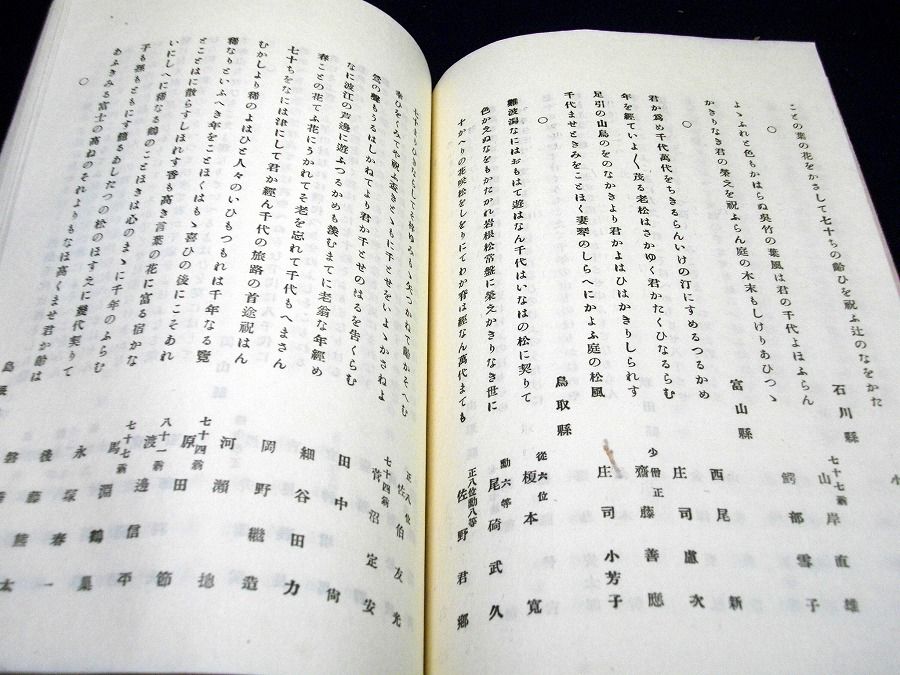 ことの葉の花をかさして七十ちの齢ひを祝ふ辻のなをかた
石川縣 七十七翁 山岸直雄
○
よゝふれと色もかはらぬ呉竹の葉風は君の千代よほふらん
鍔部雲子
かきりなき君の榮之を祝ふらん庭の木末もしけりあひつゝ
富山縣 西尾新
○
君か爲め千代萬代をちきるらんいけの汀にすめるつるかめ
庄司慮次
年を經ていよ〱茂る老松はさかゆく君かたくひなるらむ
少僧正 齋藤善應
足引の山鳥のをのなかきより君かよはひはかきりしられす
庄司小芳子
千代ませときみをことほく妻琴のしらへにかよふ庭の松風
○
鳥取縣
難波潟なにはおもはて遊はなん千代はいなはの松に契りて
從六位 榎本寬
色かえぬなをもかたかれ岩根松常盤に榮えかきりなき世に
勳六等 尾碕武久
十かへりの花咲松をしをりにてわか脊は經なん萬代まても
正八位勳八等 佐野君鄕
正八位 佐伯友光
七十四翁 菅沼定安
雪の鬢もうるはしかねてより君か千とせのはるを告くらむ
田中尙
なに波江の芦邊に遊ふつるかめも羨むまてに老翁な年經め
細谷田力
春ことの花てふ花にうかれてそ老を忘れて千代もへまさん
岡野繼造
七十ちをなには津にして君か經ん千代の旅路の首途祝はん
河瀬德
むかしより稀のよはひと人々のいひもつもれは千年なる覽
七十四翁 原田節
稀なりといふへき年をことほくはもゝ喜ひの後にこそあれ
八十一翁 渡邊信平
とことはに散らすしほれす香も高き言葉の花に富る宿かな
七十七翁 馬淵鶴巢
いにしへに稀なる鶴のことほきは心のまゝに千年のふらむ
永塚春一
子も孫もともにすむ鶴もあしたつの松のほすえに幾代契りて
後藤
あふきみる富士の高ねのそれよりもなほ高くませ君か齡は
磐 熊太
○
島根